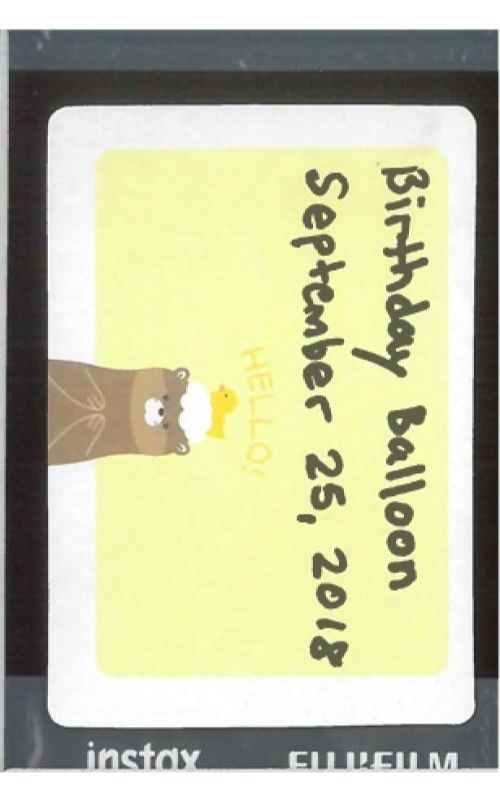 Birthday Balloon
September 25, 2018
HELLO!
instax
FUJIFILM